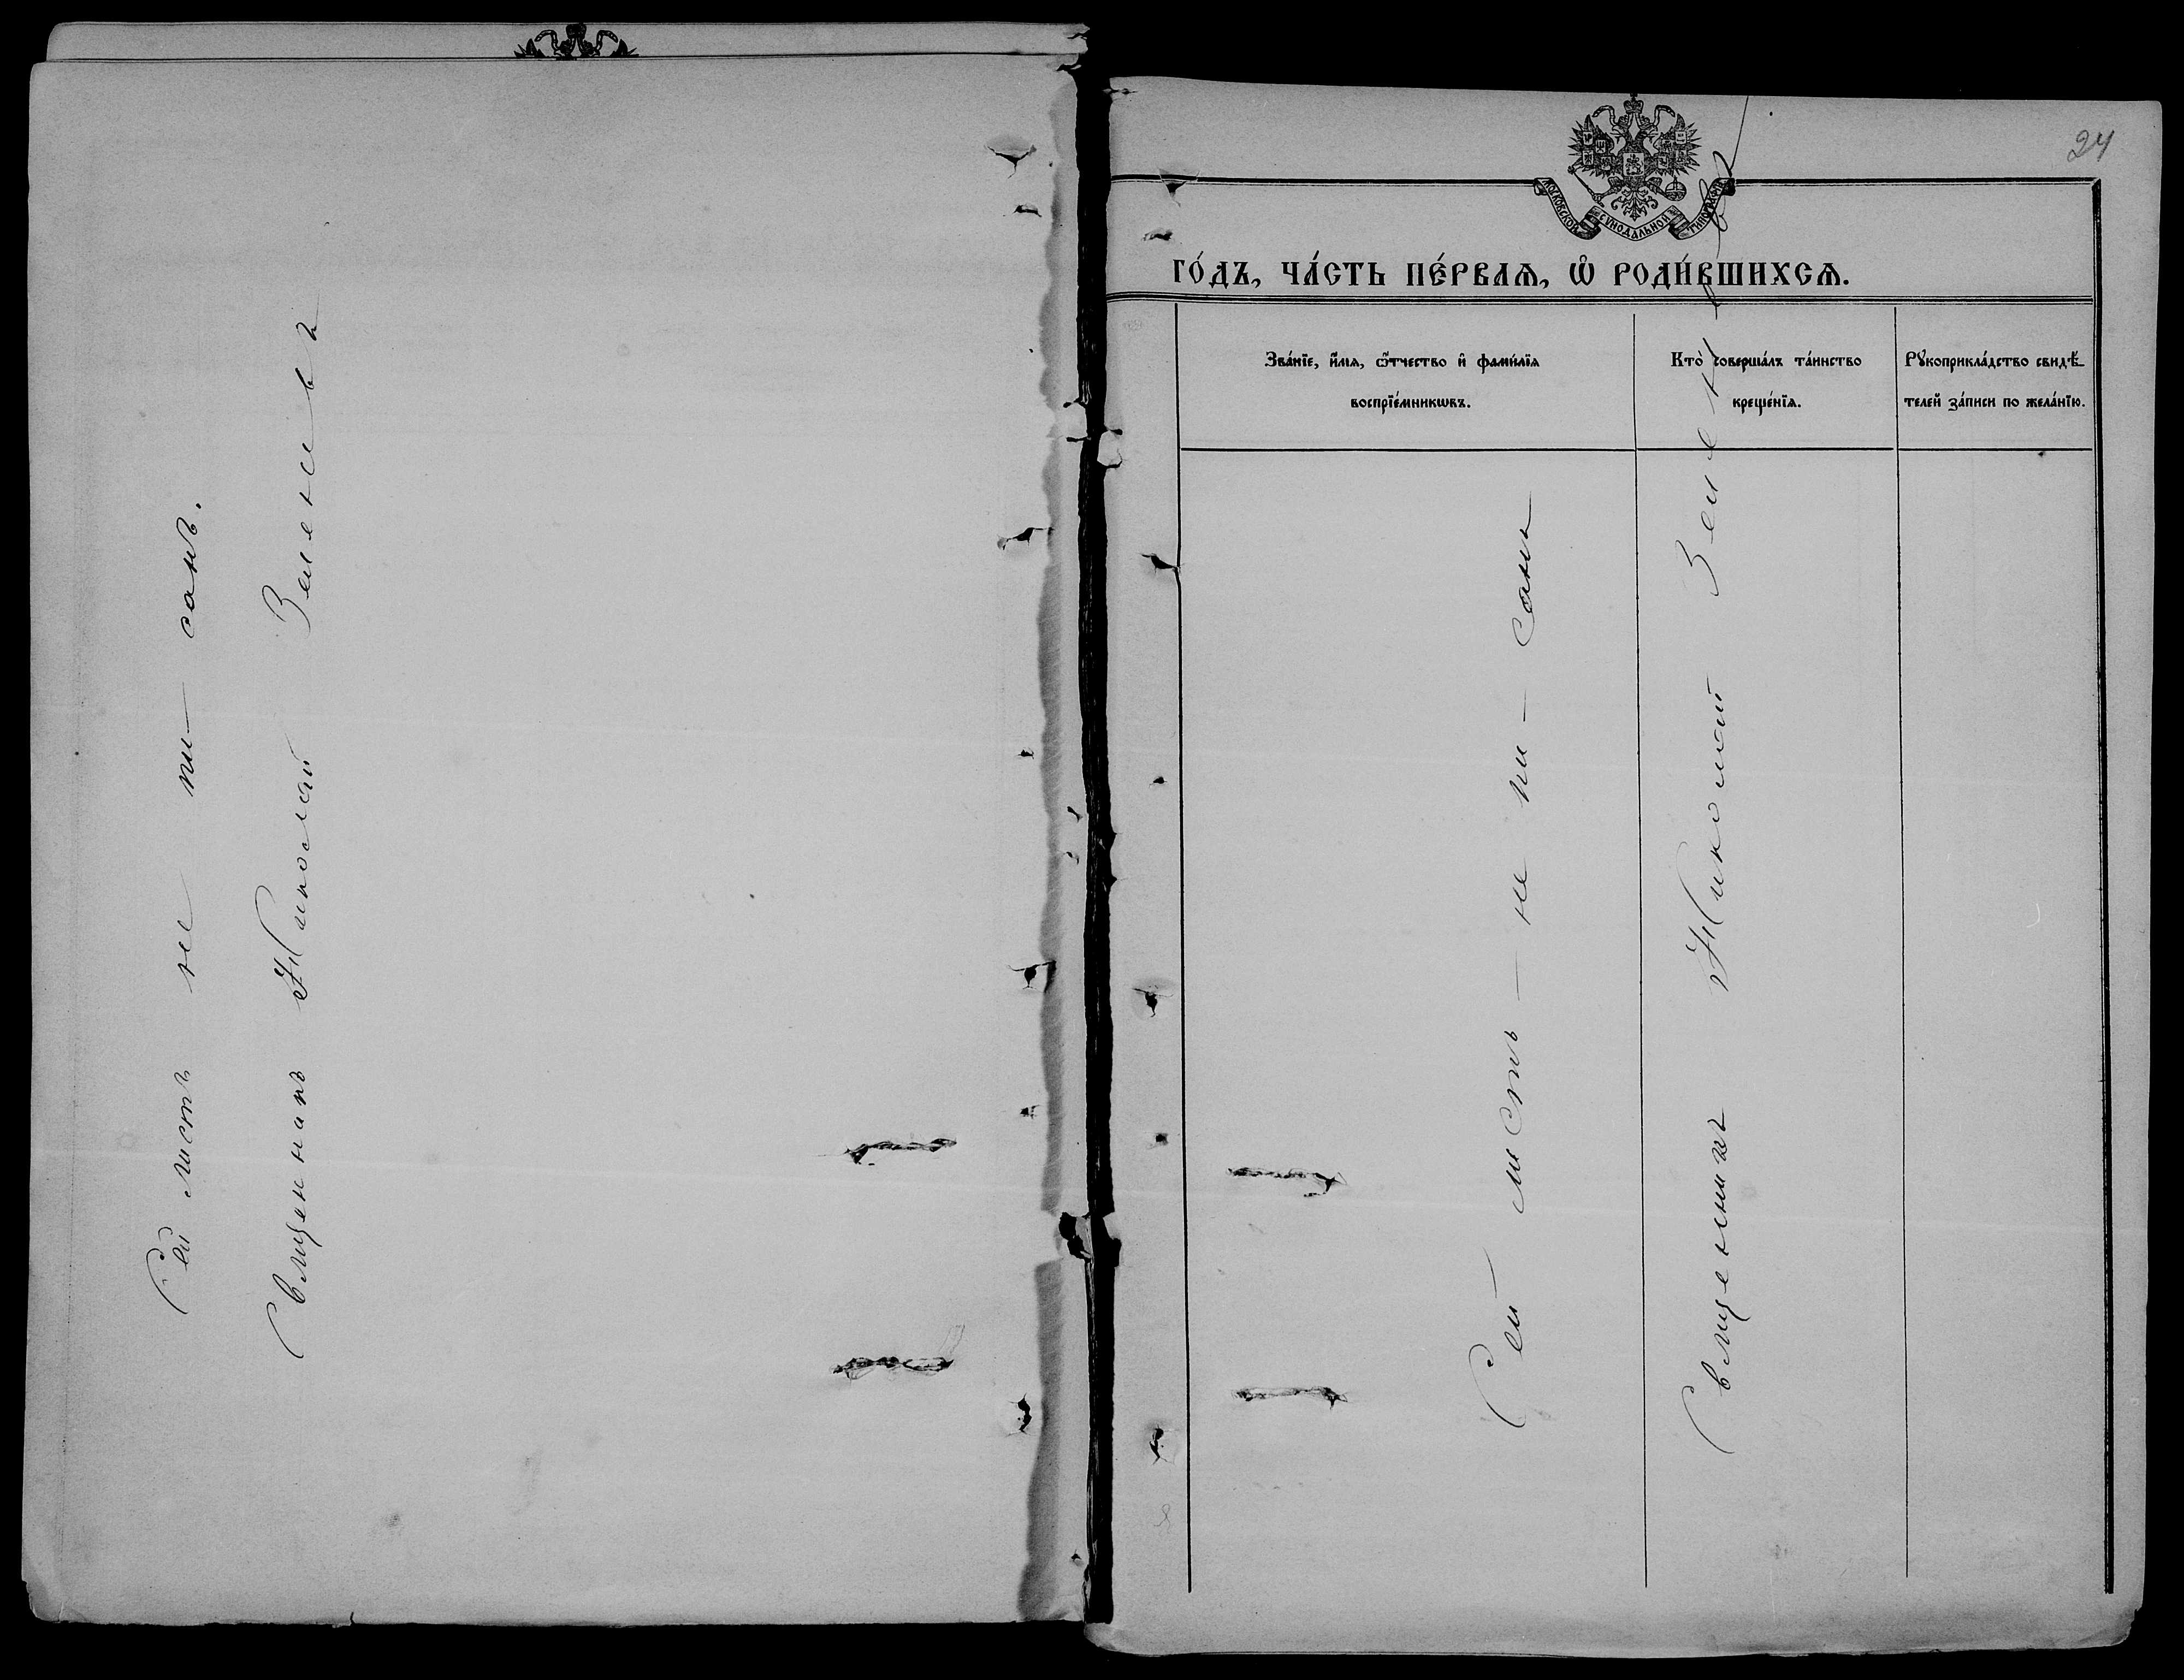 Сей листъ не пи- санъ.
Священникъ Николай
24
МОСКОВСКОЙ СѴНОДАЛЬНОЙ ТИПОГРАФІИ
ГО́ДЪ, ЧА́СТЬ ПЕ́РВАѦ, Ѡ҆ РОДИ́ВШИХСѦ.
Зва́нїе, и҆́мѧ, ѻ҆́тчество и҆ фами́лїѧ
воспрїе́мникѡвъ.
Кто̀ соверша́лъ та́инство
креще́нїѧ.
Рꙋкоприкла́дство свидѣ́-
телей за́писи по жела́нїю.
Сей листъ – не пи - санъ
Священникъ Николай